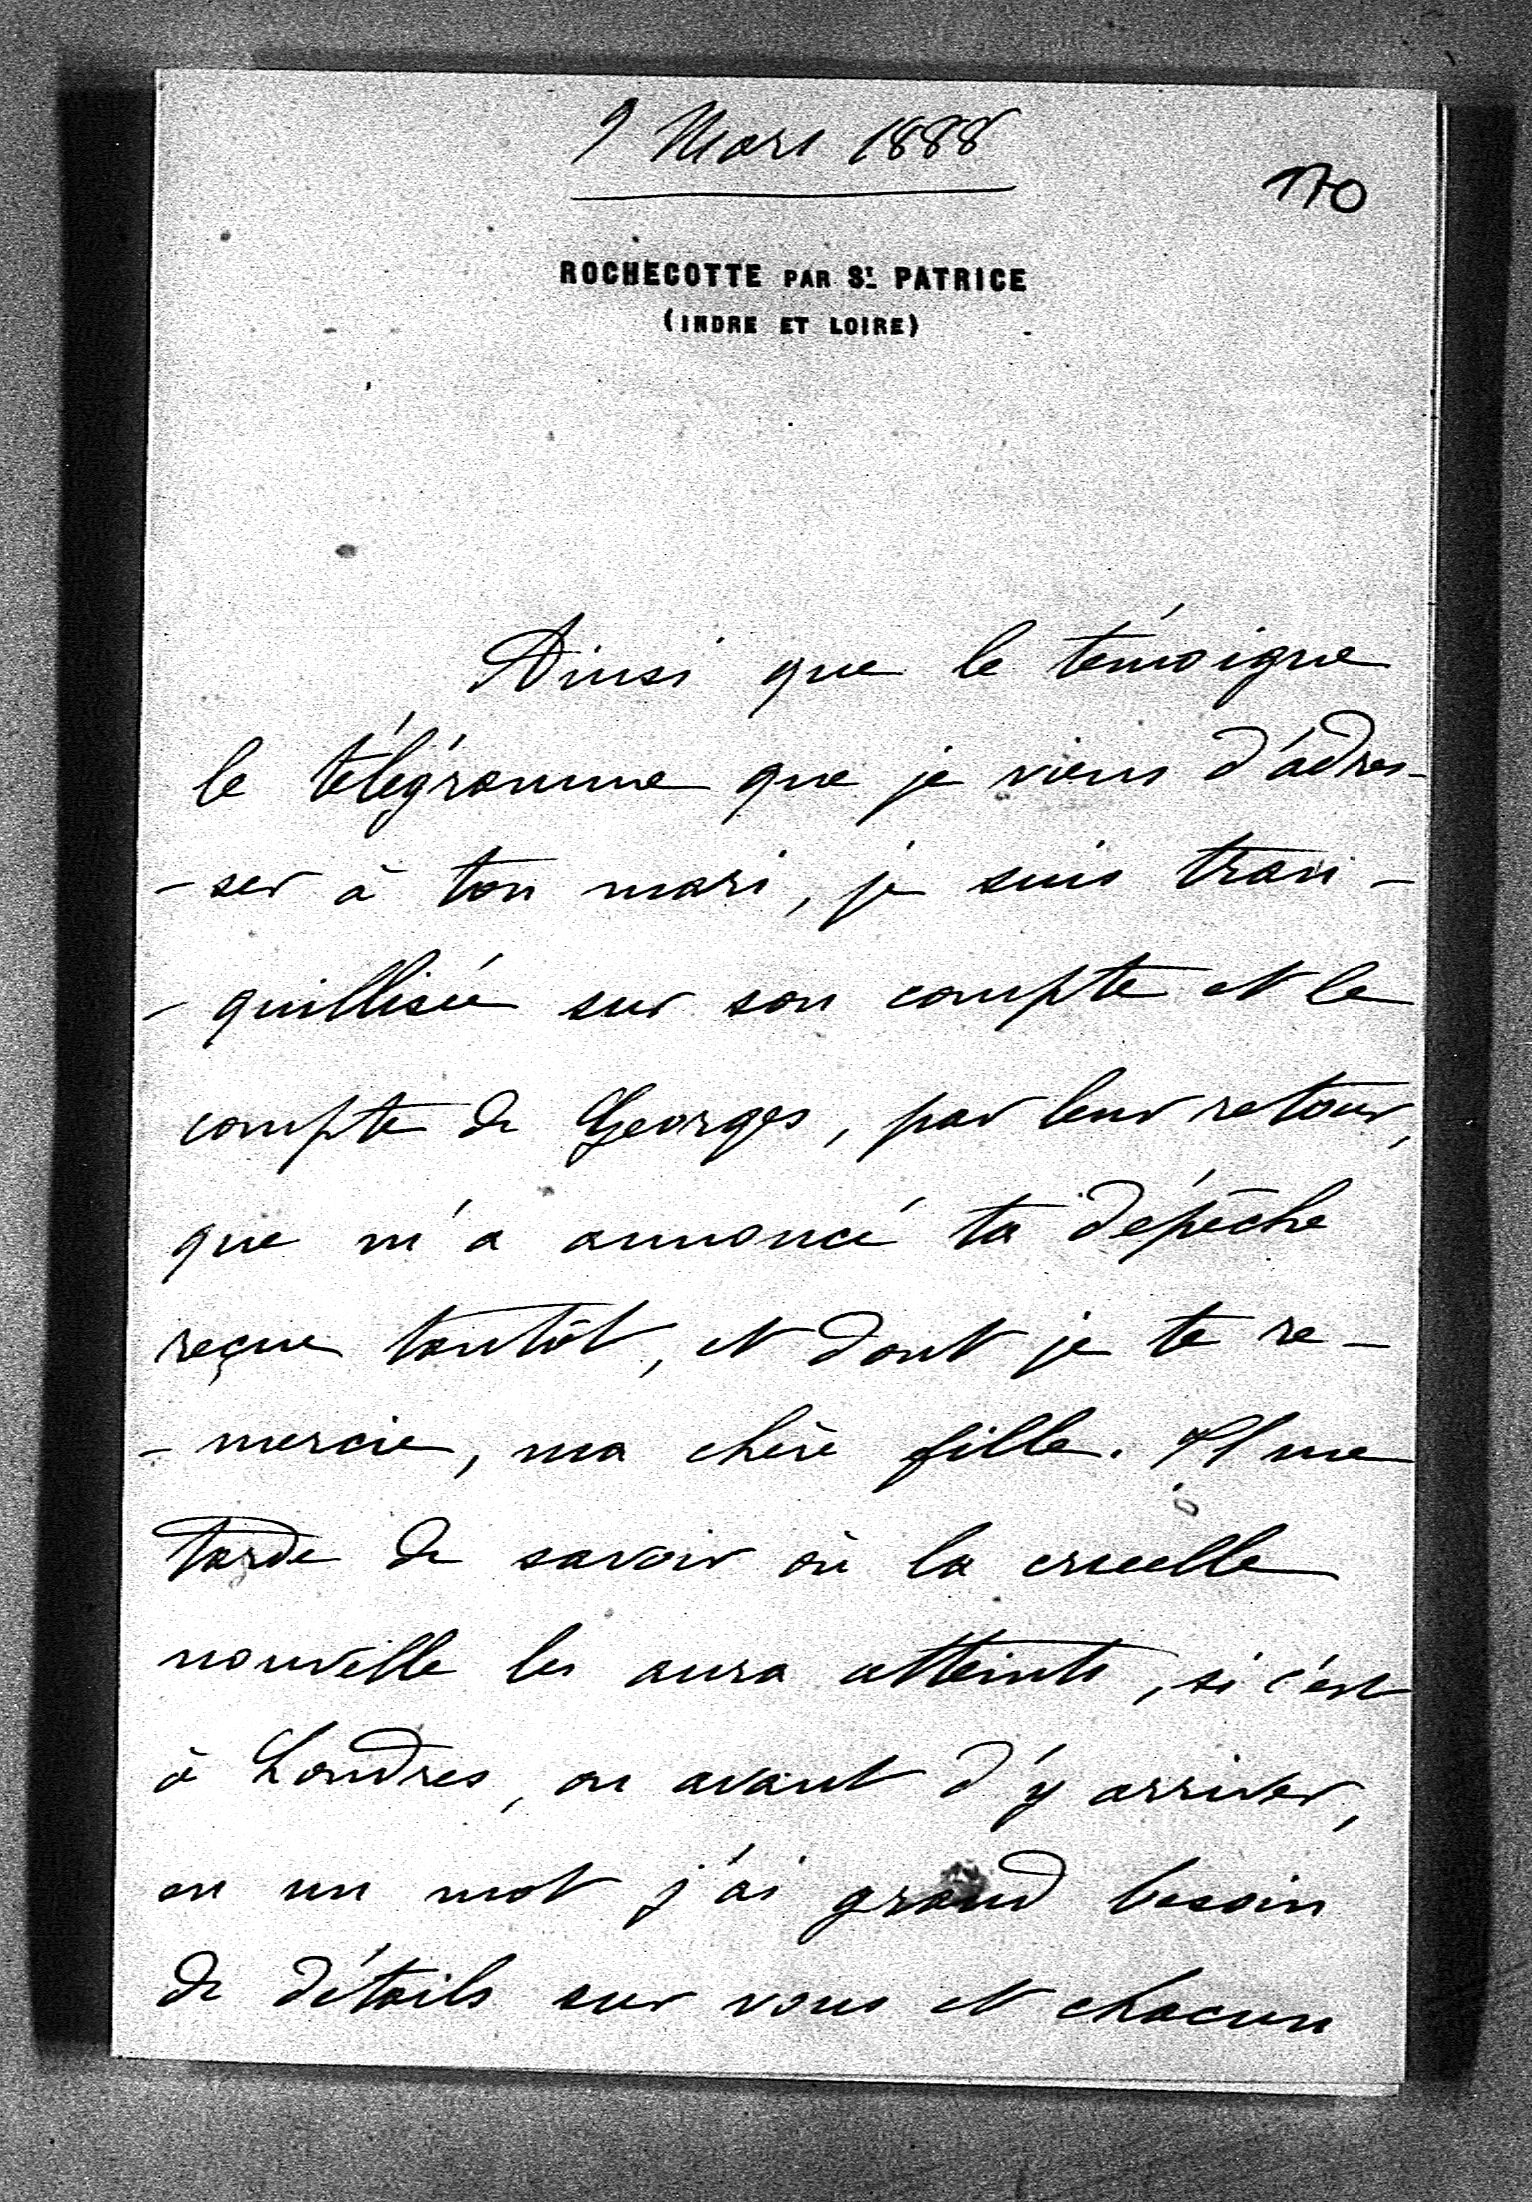 9 Mars 1888
170
ROCHECOTTE PAR St. PATRICE
(INDRE ET LOIRE)
Ainsi que le témoigne
le télégramme que je viens d'adres-
-ser à ton mari, je suis tran-
-quillisée sur son compte et le
compte de Georges, par leur retour,
que m'a annoncé ta dépêche
reçue tantôt, et dont je te re-
-mercie, ma chère fille. Il me
tarde de savoir où la cruelle
nouvelle les aura atteints, si c'est
à Londres, ou avant d'y arriver,
en un mot j'ai grand besoin
de détails sur vous et chacun